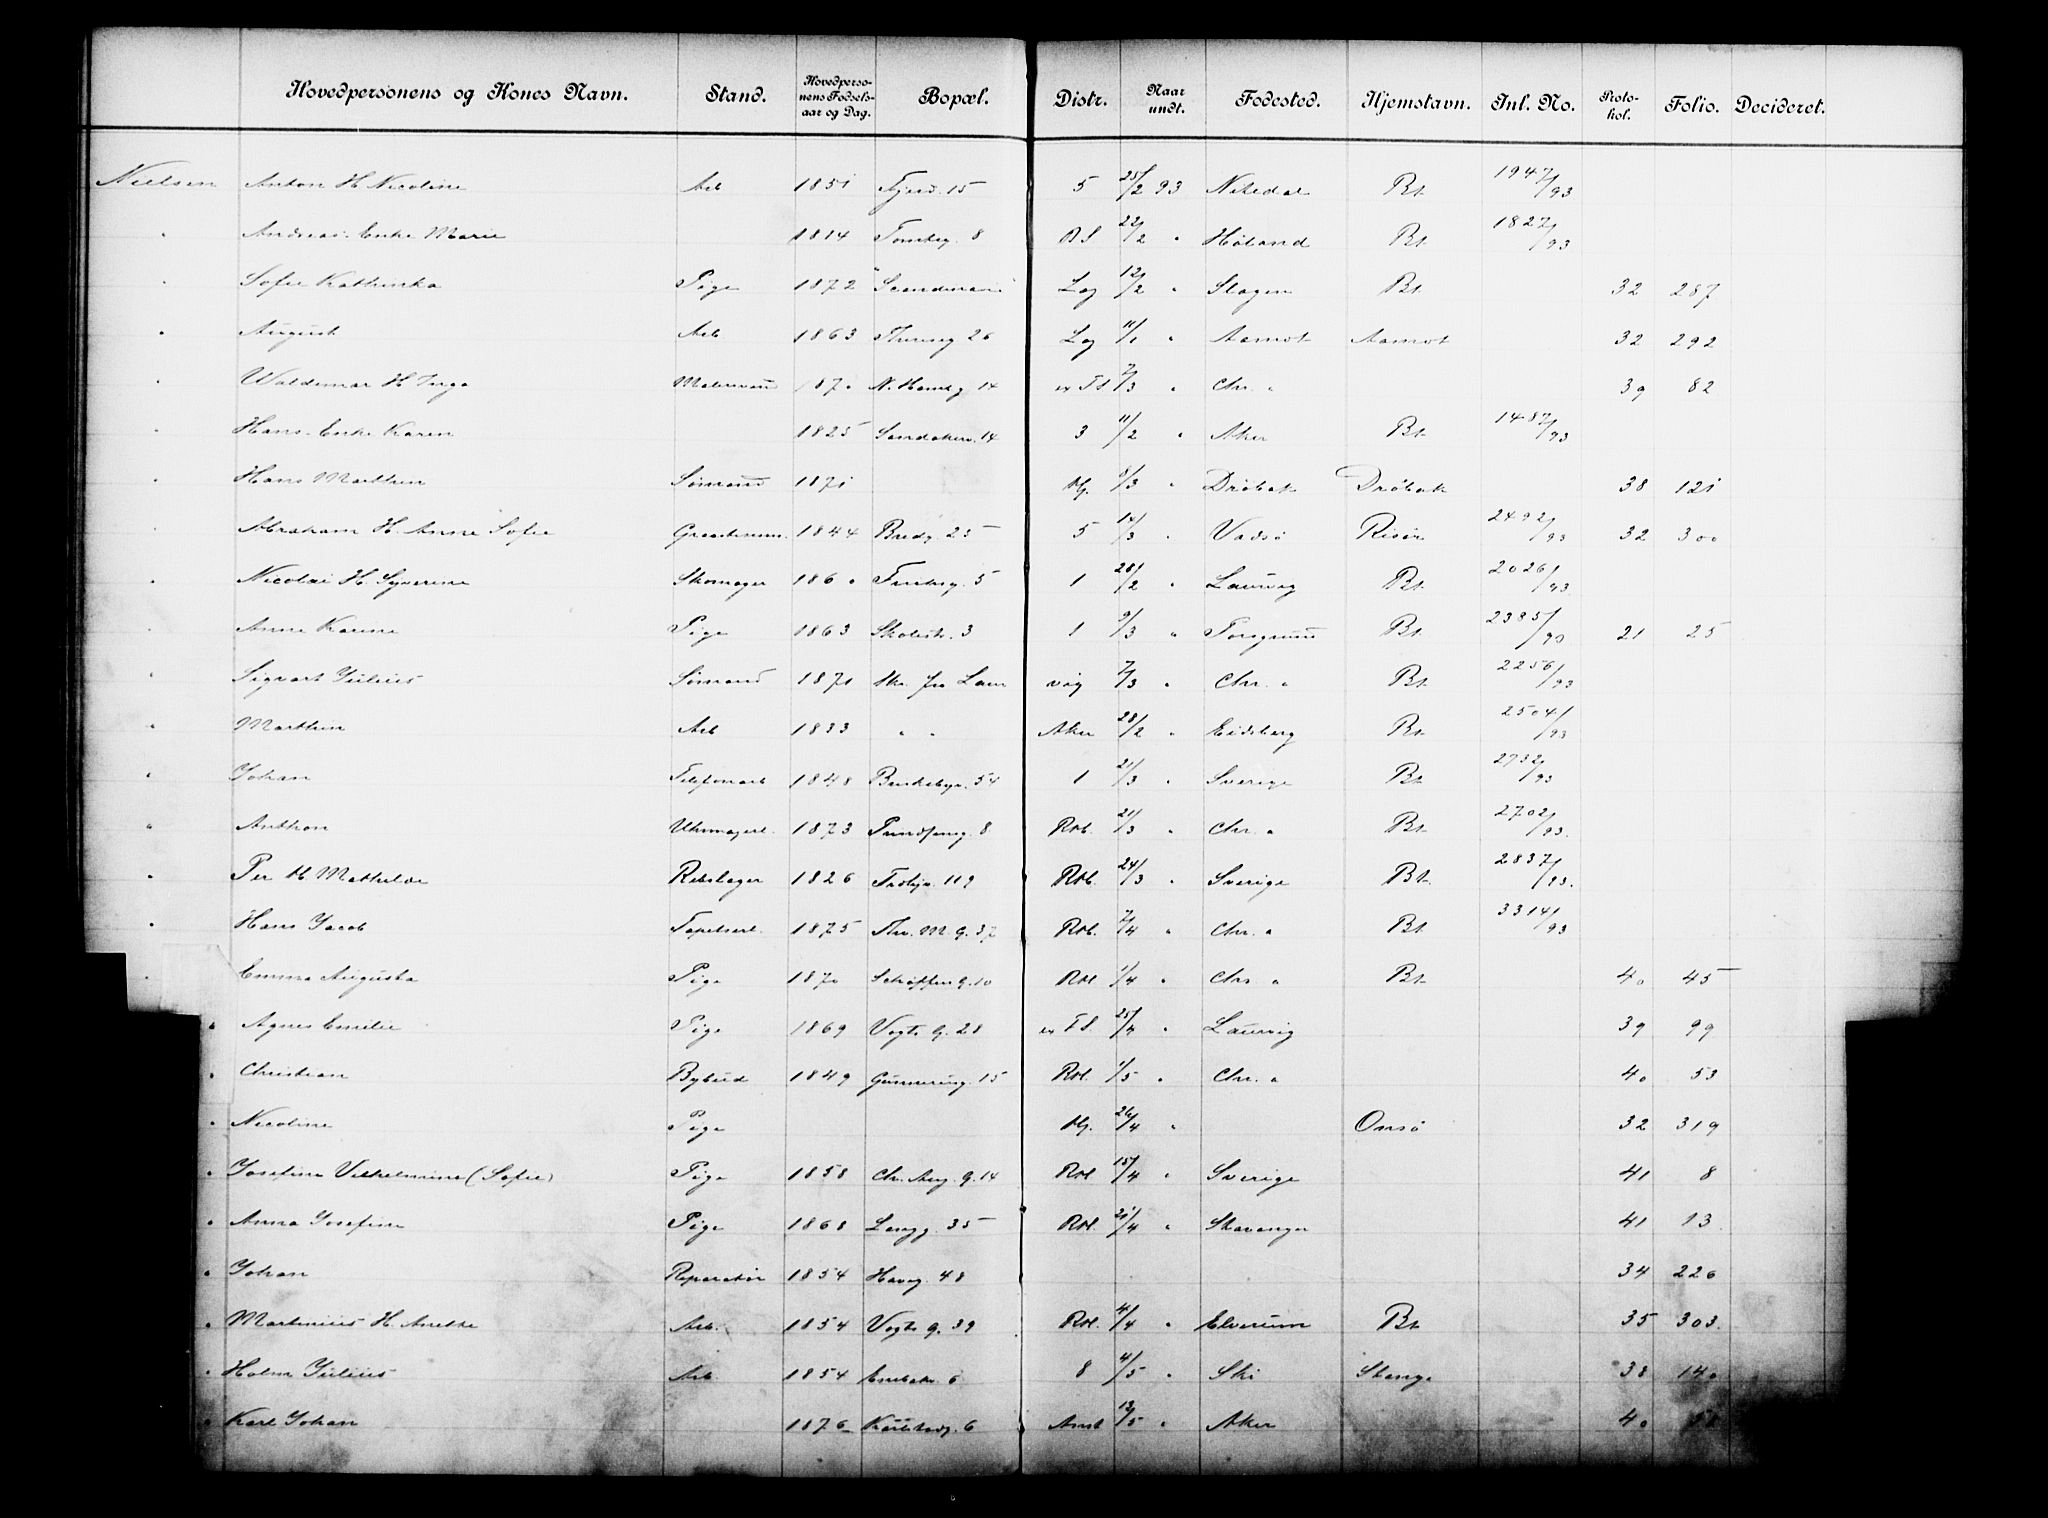 Hovedpersonens og Kones Navn. Stand. Hovedperso-nens Fødsels-aar og Dag. Bopæl. Distr. Naar undt. Fødested. Hjemstavn. Inl. No. Proto-kol. Folio. Decideret.
Nielsen Anton H. Nicoline Arb 1851 15 5 25/2 93 Nitedal Bt 1947/93
" Andreas. Enke Marie 1814 8 22/2 " Høland Bt 1827/93
" Sofie Kathinka Pige 1872 Lag 12/2 " Slagen Bt 32 287
" August Arb 1863 26 Lag 11/1 " Aamot Aamot 32 292
" Waldemar H Inga Malersvend 1870 14 7/3 " Chr. a 39 82
" Hans. Enke Karen 1825 Sandakerv. 14 3 11/2 " Aker Bt 1487/93
" Hans Marthin Sømand 1871 8/3 " Drøbak Drøbak 38 121
" Abraham H. Anne Sofie 1844 Bredg. 25 5 14/3 " Vadsø Risør 2492/93 32 300
" Nicolai H. Syverine Skomager 1860 5 1 28/2 " Laurvig Bt 2026/93
" Anne Karine Pige 1863 Skolest. 3 1 9/3 " Porsgrund Bt 2385/93 21 25
" Sigvart Julius Sømand 1871 fra Laur vig 7/3 " Chr. a Bt 2256/93
" Marthin Arb 1833 " " Aker 28/2 " Eidsberg Bt 2504/93
" Johan Telefonarb 1848 54 1 21/3 " Sverige Bt 2732/93
" Anthon Uhrmagerl. 1873 8 Rbl. 21/3 " Chr. a Bt 2702/93.
" Per H Mathilde Rebslager 1826 119 Rbl. 24/3 " Sverige Bt. 2837/93.
" Hans Jacob Tapetserl. 1875 Thv. M. G. 37 Rbl. 7/4 " Chr. a Bt 3314/93
" Emma Augusta Pige 1870 10 Rbl 1/4 " Chr a Bt 40 45
" Agnes Emilie Pige 1869 Vogts G. 28 25/4 " Laurvig 39 99
" Christian Bybud 1849 Gunnerusg. 15 Rbl. 1/5 " Chr. a 40 53
" Nicoline Pige 26/4 " Onsø 32 319
" Josefine Vilhelmine (Sofie) Pige 1858 Chr. Aug. G. 14 Rbl 15/4 " Sverige 41 8
" Anna Josefine Pige 1868 Langg. 35 Rbl. 21/4 " Stavanger 41 13.
" Johan Reparatør 1854 Haveg. 48 34 226
" Martinius H. Anette Arb. 1854 Vogts G. 39 Rbl. 4/4 " Elverum Bt 35 303.
" Holm Julius Arb 1854 Enebakv 6 8 4/5 " Ski Stange 38 140
" Karl Johan 1876 6 Amt 13/5 " Aker 40